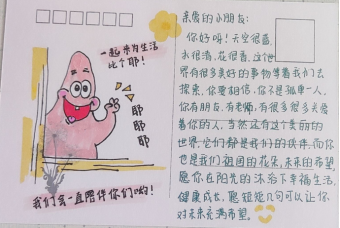 一起来为生活
比个耶!
耶
耶
耶
我们会一直陪伴你们哟!
亲爱的小朋友:
你好呀!天空很蓝,
水很清,花很香,这世
界有很多美好的事物等着我们去
探索,你要相信,你不是孤单一人,
你有朋友,有老师,有很多很多关爱
着你的人,当然还有这个美丽的
世界,它们都是我们的伙伴,而你
也是我们祖国的花朵,未来的希望,
愿你在阳光的沐浴下幸福生活,
健康成长,愿短短几句可以让你
对未来充满希望。